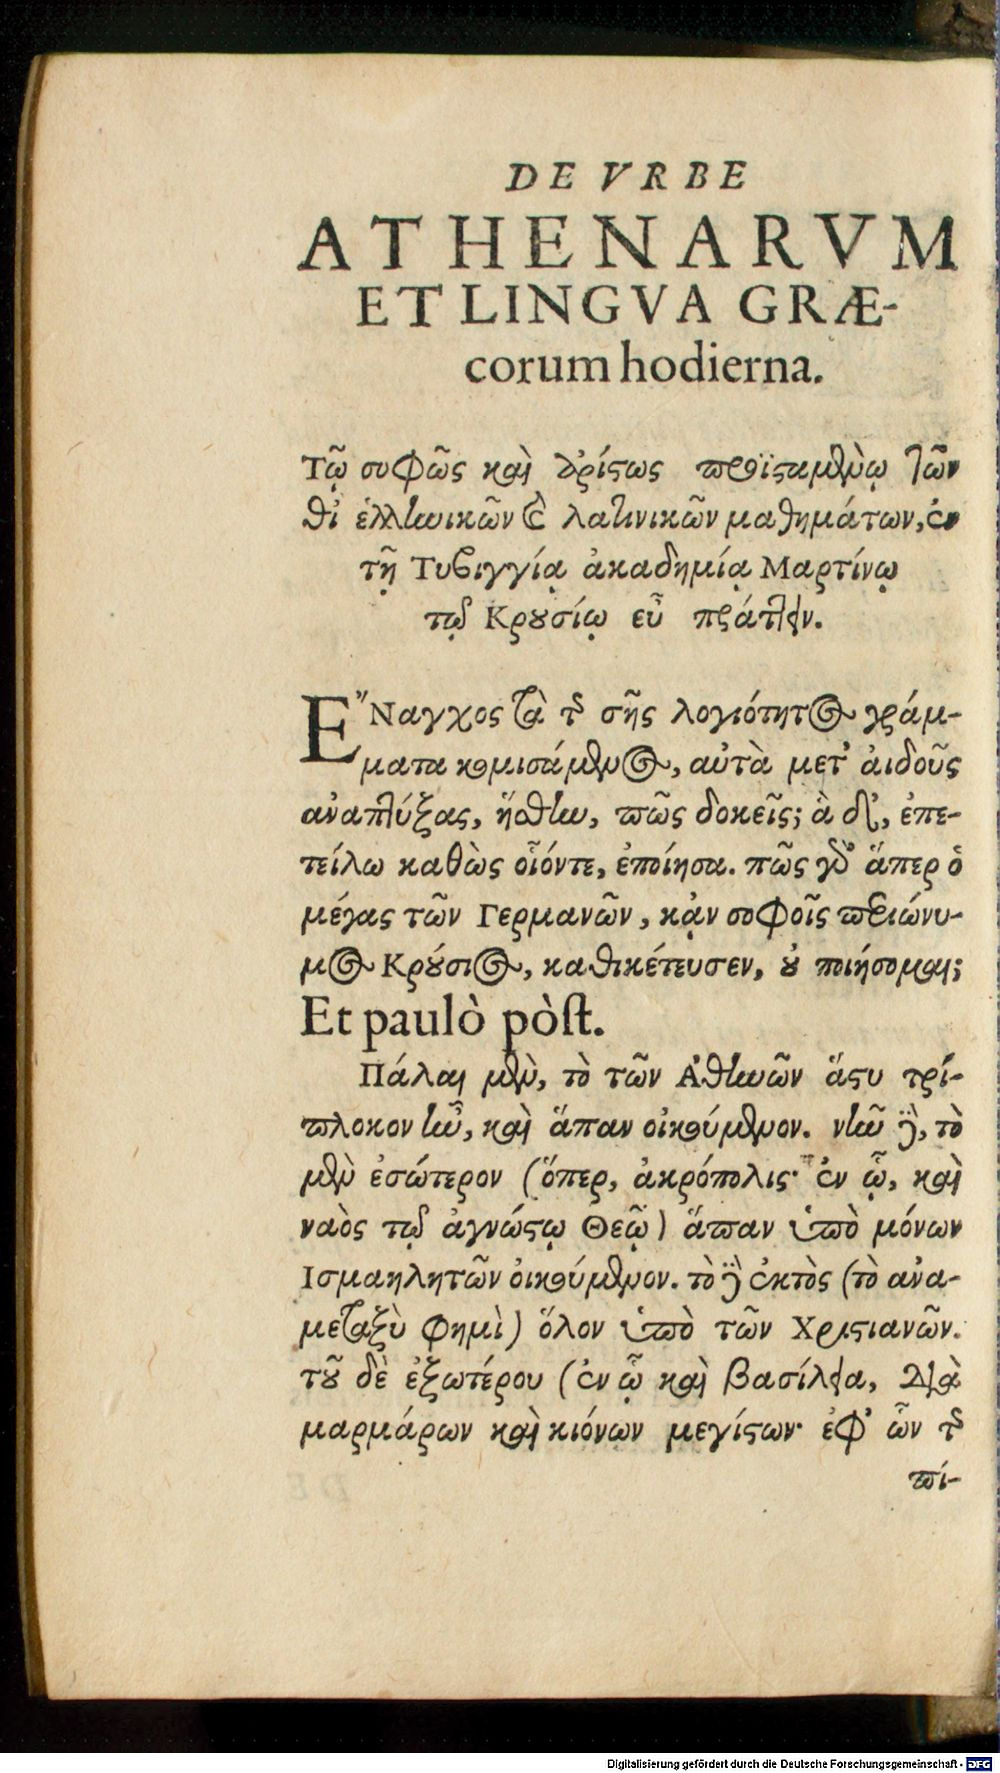 DE VRBE
ATHENARVM
ET LINGVA GRÆ-
corum hodierna.
Τῷ σοφῶς καὶ ἀρίστως προϊσταμένῳ τῶν
θ' ἑλληνικῶν καὶ λατινικῶν μαθημάτων, ἐν
τῇ Τυβιγγίᾳ ἀκαδημίᾳ Μαρτίνῳ
τῷ Κρουσίῳ εὖ πράττειν.
ἜΝαγχος τὰ τῆς σῆς λογιότητος γράμ-
ματα κομισάμενος, αὐτὰ μετ' αἰδοῦς
ἀναπτύξας, ἥσθην, πῶς δοκεῖς; ἃ δ', ἐπε-
τείλω καθὼς οἷόντε, ἐποίησα. πῶς γὰρ ἅπερ ὁ
μέγας τῶν Γερμανῶν, κᾀν σοφοῖς περιώνυ-
μος Κρούσιος, καθικέτευσεν, οὐ ποιήσομαι;
Et paulò pòst.
Πάλαι μὲν, τὸ τῶν Ἀθηνῶν ἄστυ τρί-
πλοκον ἦν, καὶ ἅπαν οἰκούμενον. νῦν δὲ, τὸ
μὲν ἐσώτερον (ὅπερ, ἀκρόπολις· ἐν ᾧ, καὶ
ναὸς τῷ ἀγνώστῳ Θεῷ) ἅπαν ὑπὸ μόνων
Ισμαηλητῶν οἰκούμενον. τὸ δὲ ἐκτὸς (τὸ ἀνα-
μεταξὺ φημὶ) ὅλον ὑπὸ τῶν Χριστιανῶν.
τοῦ δὲ ἐξωτέρου (ἐν ᾧ καὶ βασίλεια, διὰ
μαρμάρων καὶ κιόνων μεγίστων· ἐφ' ὧν τῆς
πί-
Digitalisierung gefördert durch die Deutsche Forschungsgemeinschaft - DFG